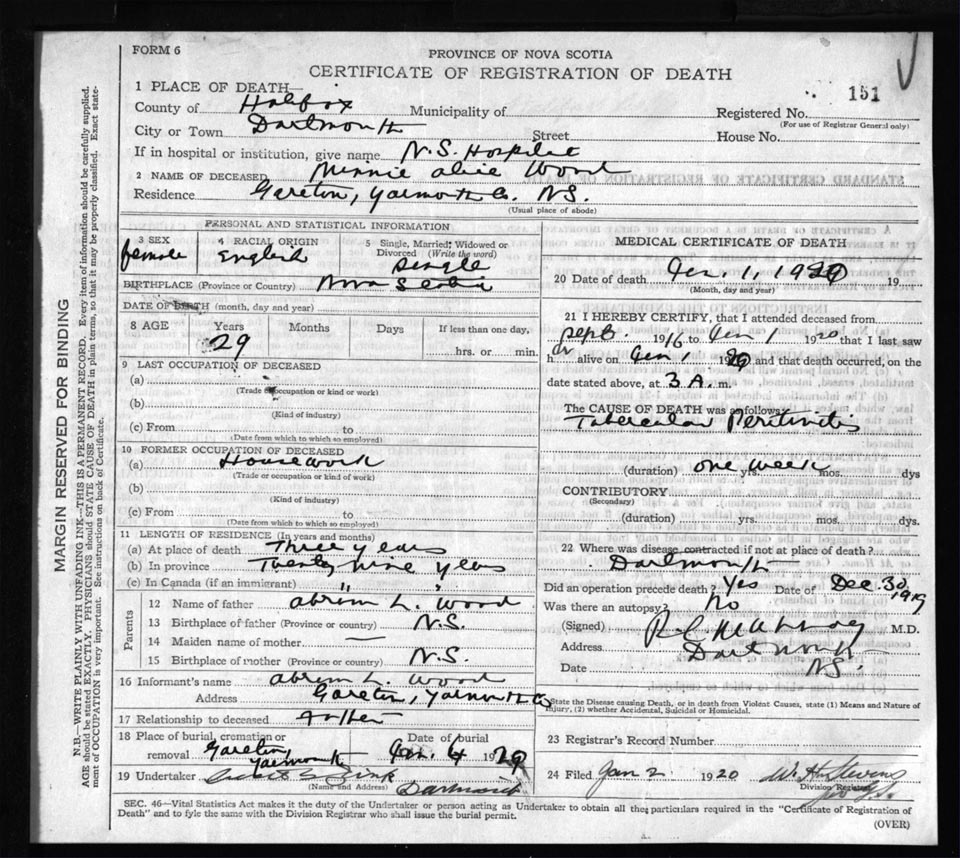 FORM 6
PROVINCE OF NOVA SCOTIA
CERTIFICATE OF REGISTRATION OF DEATH
151
1 PLACE OF DEATH—
County of Halifax Municipality of Registered No.
(For use of Registrar General only)
City or Town Dartmouth Street House No.
If in hospital or institution, give name N.S. Hospital
2 NAME OF DECEASED Minnie Alice Wood
Residence Gareton, Yarmouth Co. N.S.
(Usual place of abode)
PERSONAL AND STATISTICAL INFORMATION
3 SEX 4 RACIAL ORIGIN 5 Single, Married, Widowed or Divorced (Write the word)
female English Single
BIRTHPLACE (Province or Country) Nova Scotia
DATE OF BIRTH (month, day and year)
8 AGE Years Months Days If less than one day,
29 hrs. or min.
9 LAST OCCUPATION OF DECEASED
(a)
(Trade or occupation or kind or work)
(b)
(Kind of industry)
(c) From to
(Date from which to which so employed)
10 FORMER OCCUPATION OF DECEASED
(a) Housework
(Trade or occupation or kind of work)
(b)
(Kind of industry)
(c) From to
(Date from which to which so employed)
11 LENGTH OF RESIDENCE (In years and months)
(a) At place of death Three years
(b) In province Twenty nine years
(c) In Canada (if an immigrant) " "
Parents
12 Name of father Abram L. Wood
13 Birthplace of father (Province or country) N.S.
14 Maiden name of mother —
15 Birthplace of mother (Province or country) N.S.
16 Informant's name Abram L. Wood
Address Gareton, Yarmouth Co
17 Relationship to deceased Father
18 Place of burial, cremation or removal Gareton, Yarmouth Date of burial Jan. 4 19
19 Undertaker Zink
(Name and Address) Dartmouth
MEDICAL CERTIFICATE OF DEATH
20 Date of death Jan. 1, 19
(Month, day and year)
21 I HEREBY CERTIFY, that I attended deceased from
Sept. 1916 to Jan 1 1920 that I last saw
h er alive on Jan 1 19 and that death occurred, on the
date stated above, at 3 A. m.
The CAUSE OF DEATH was as follows:
Tubercular Peritinitis
(duration) one week yrs. mos. dys
CONTRIBUTORY
(Secondary)
(duration) yrs. mos. dys.
22 Where was disease contracted if not at place of death?
Dartmouth
Did an operation precede death? Yes Date of Dec. 30, 1919
Was there an autopsy? No
(Signed) M.D.
Address Dartmouth
Date N.S.
State the Disease causing Death, or in death from Violent Causes, state (1) Means and Nature of
Injury, (2) whether Accidental, Suicidal or Homicidal.
23 Registrar's Record Number
24 Filed Jan 2 1920 W. H. Stevens
Division Registrar
SEC. 46—Vital Statistics Act makes it the duty of the Undertaker or person acting as Undertaker to obtain all the particulars required in the "Certificate of Registration of
Death" and to fyle the same with the Division Registrar who shall issue the burial permit.
(OVER)
MARGIN RESERVED FOR BINDING
N.B.—WRITE PLAINLY WITH UNFADING INK—THIS IS A PERMANENT RECORD. Every item of information should be carefully supplied.
AGE should be stated EXACTLY. PHYSICIANS should STATE CAUSE OF DEATH in plain terms, so that it may be properly classified. Exact state-
ment of OCCUPATION is very important. See instructions on back of Certificate.